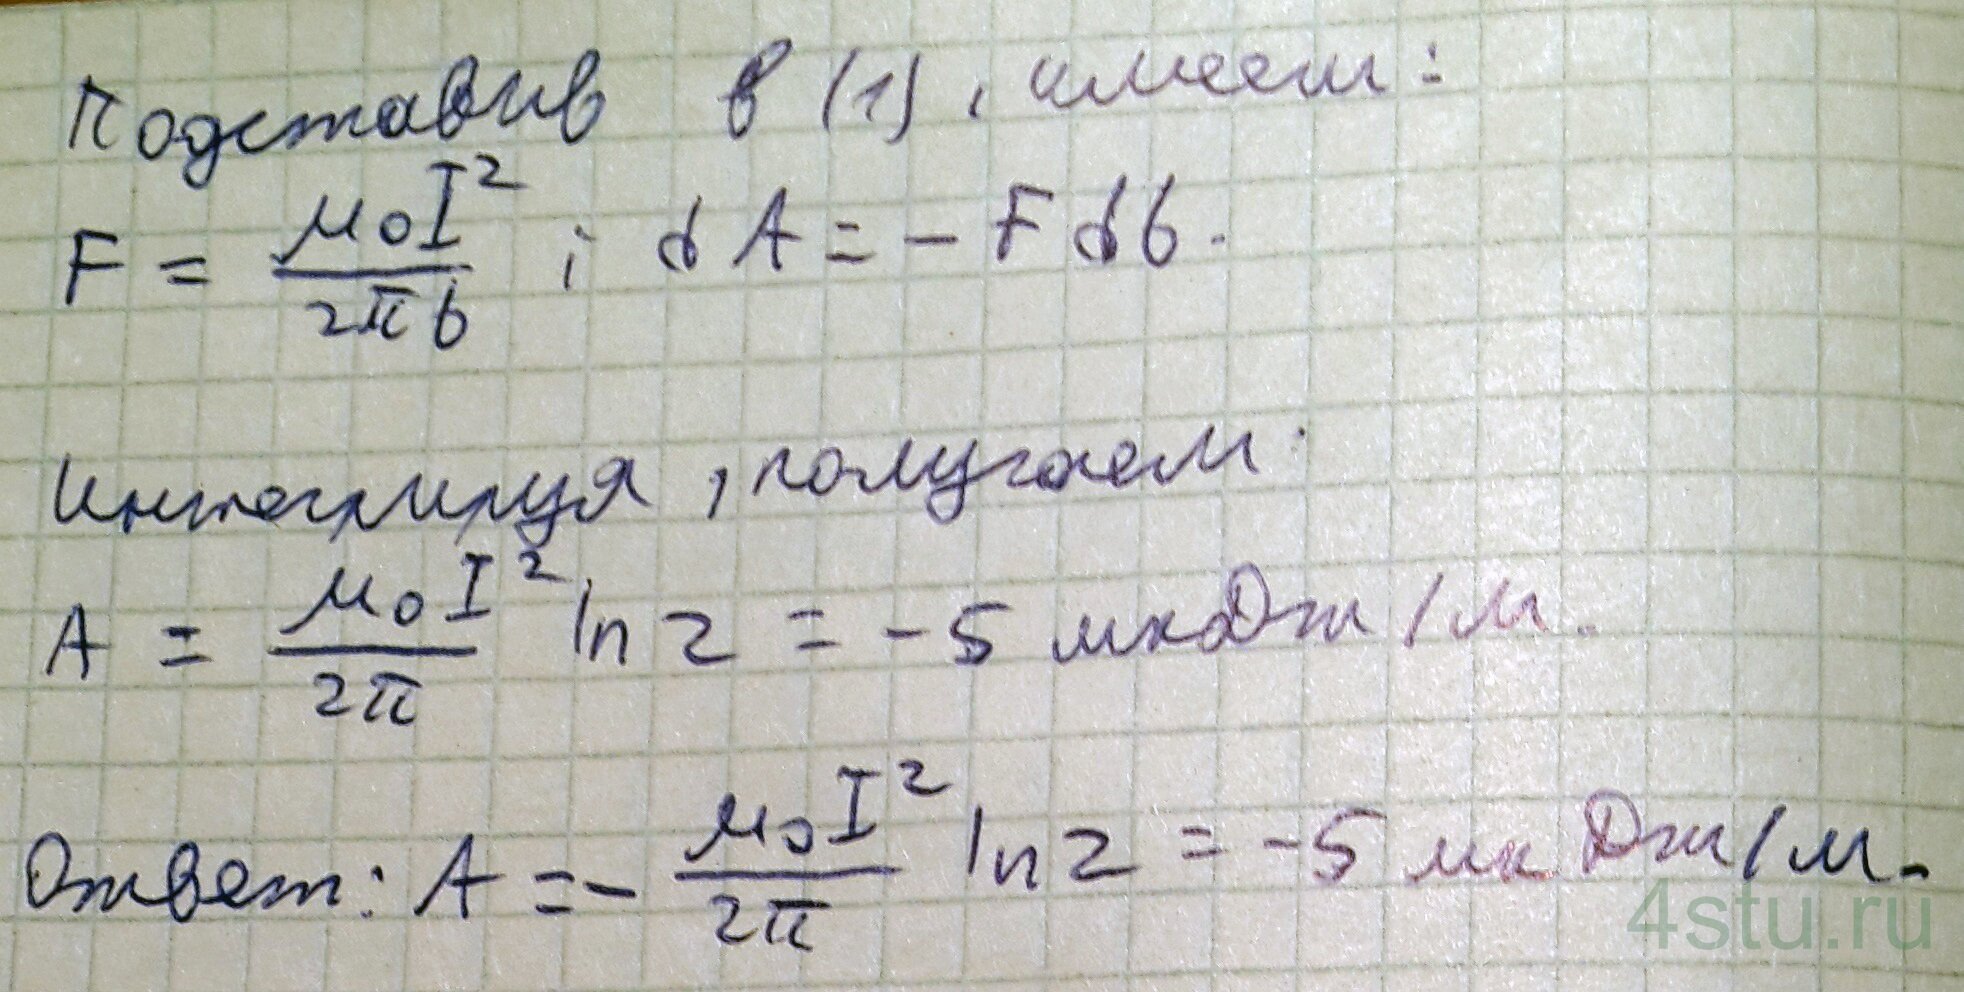 Подставив в (1), имеем:
F = μ₀I² / 2πb ; dA = - Fdb.
Интегрируя, получаем:
A = μ₀I² / 2π ln 2 = -5 мкДж/м.
Ответ: A = - μ₀I² / 2π ln 2 = -5 мк Дж/м.
4stu.ru